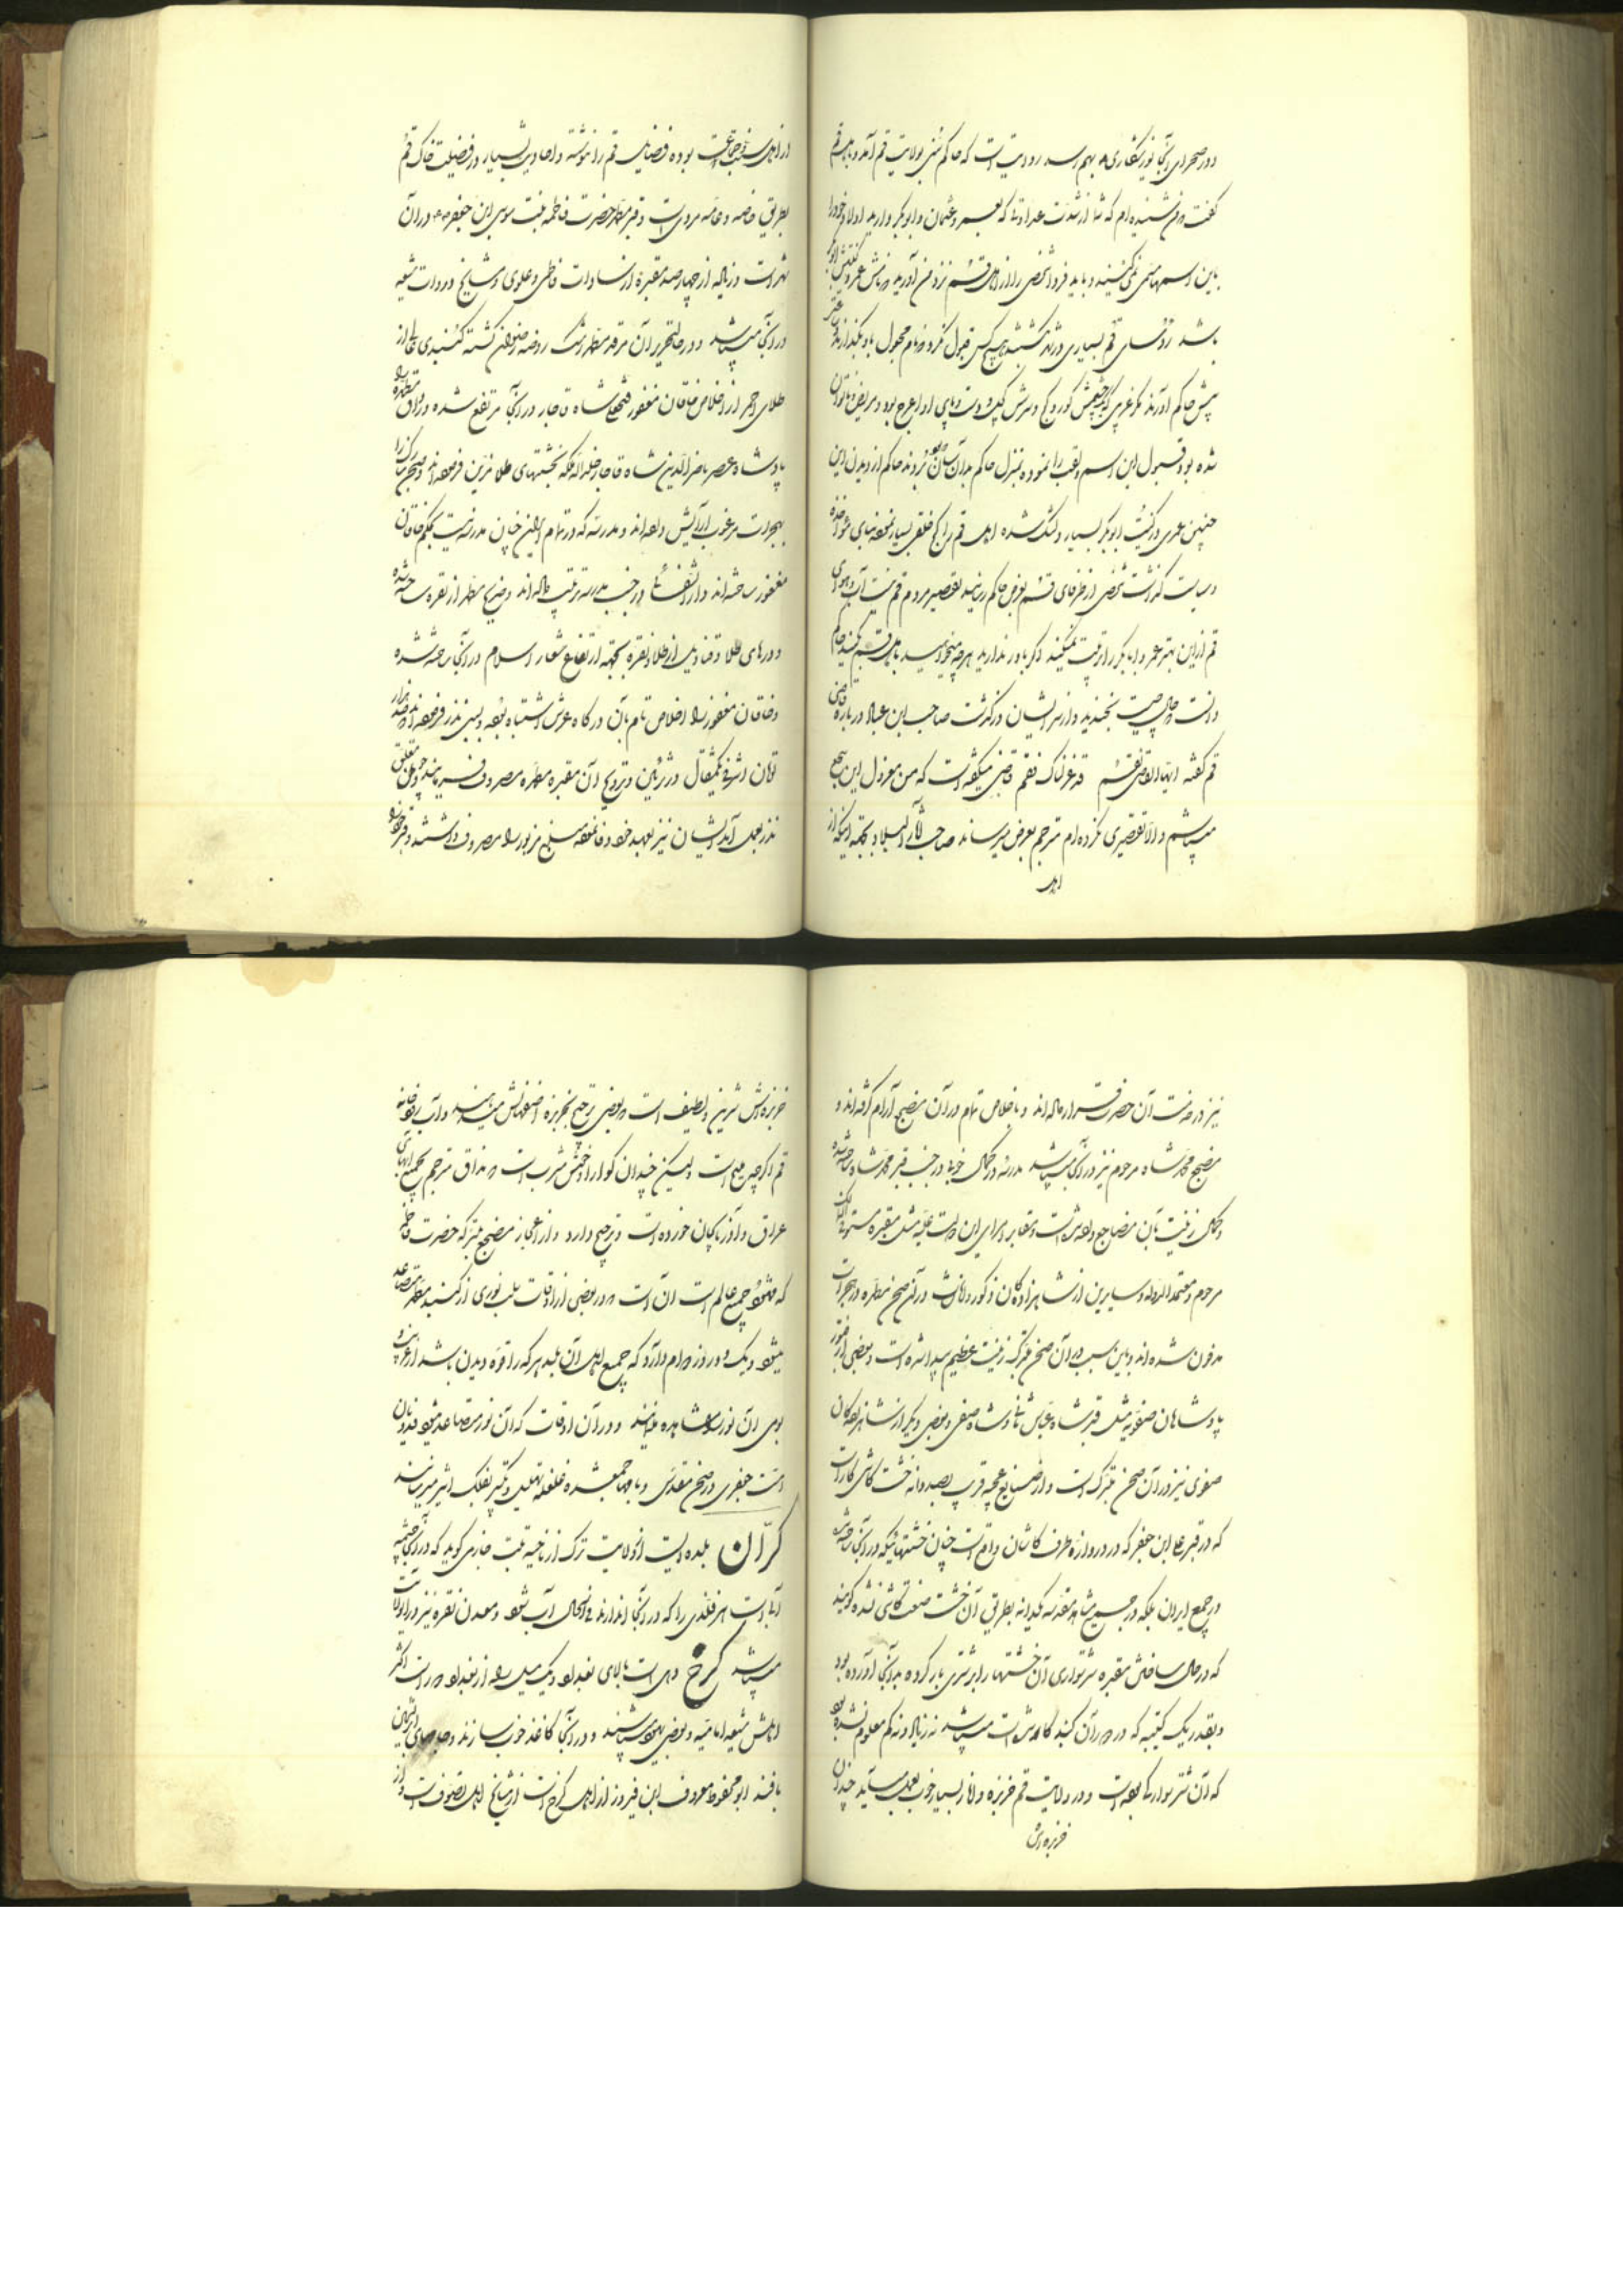 ودر صحرای آنجا نور شکاری بهم رسد روایت است که حاکم سنی بولایت قم آمد و باهل قم
گفت من شنیده ام که شما از شدت عداوتی که بعمر وعثمان وابوبکر دارید اولاد خود را
باین اسمها مسمی نمی کنید و باید فردا شخصی را از اهل قم نزد من آورید که نامش عمر و کنیتش ابوبکر
باشد رؤسای قم بسیاری در شهر گشتند هیچ کس قبول نکرد که نام مجهول باو بگذارند
پیش حاکم آورند مگر غریبی که چشمش کور و کج و سرش کچل و دست و پای او اعرج بود و مریض و ناتوان
شده بود قبول این اسم ولقب را نموده بمنزل حاکم بردند حاکم از دیدن این
چنین عمری و کنیت ابوبکر بسیار دلتنگ شده اهل قم را کج خلقی بسیار نموده بنای مؤاخذه
وسیاست گذاشت شخصی از ظرفای قم بعرض حاکم رسانید تقصیر مردم قم نیست آب و هوای
قم از این بهتر عمر و ابابکر را تربیت نمیکند اگر باور ندارید هرچه میخواهید باهل قم بکنید حاکم
دانست حال چیست بخندید و از سر ایشان درگذشت صاحب ابن عباد در باره قاضی
قم گفته ایها القاضی بقم قد عزلناک فقم قاضی میگفته است که من معزول این سجع
میباشم والا تقصیری نکرده ام مترجم بعرض میرساند صاحب آثار البلاد بجهة اینکه از
اهل
از اهل سنت وجماعت بوده فضایل قم را ننوشته و احادیث بسیار در فضیلت خاک قم
بطریق خاصه و عامه مرویست و قبر مطهر حضرت فاطمه بنت موسی ابن جعفر در آن
شهر است و زیاده از چهارصد مقبره از سادات فاطمی و علوی و مشایخ و روات شیعه
در آنجا میباشد و در حال تحریر آن مرقد مطهر رشک روضه رضوان گشته گنبدی عالی از
طلای احمر از اخلاص خاقان مغفور فتحعلی شاه قاجار در آنجا مرتفع شده
پادشاه عصر ناصرالدین شاه قاجار خلد الله ملکه بخشتهای طلا مزین فرموده اند
بحجرات مرغوب آرایش داده اند و مدرسه که در تمام ایران چنان مدرسه نیست بحکم خاقان
مغفور ساخته اند و دارالشفا در جنب مدرسه ترتیب داده اند و ضریح مطهر از نقره ساخته شده
و درهای طلا وقنادیل از طلا و نقره بجهة ارتفاع شعار اسلام در آنجا ساخته شده
وخاقان مغفور را اخلاص تام بآن درگاه عرش اشتباه بوده
تومان اشرفی یکمثقالی در تزیین و ترویج آن مقبره مطهره مصروف فرمایند
نذر بعمل آمد ایشان نیز بعهد خود وفا نموده مبلغ مزبور را مصروف داشتند
نیز در خدمت آن حضرت قرار داده اند و باخلاص تمام در آن مضجع آرام گرفته اند و
مضجع محمد شاه مرحوم نیز در آنجا میباشد مدرسه در کمال خوبی در جنب قبر محمد شاه ساخته شده
وکمال زینت بآن مضاجع داده شده است و مقابر امرای این دولت علیه مثل مقبره مستوفی الممالک
مرحوم و معتمد الدوله و سایرین از شاهزادگان ذکور و اناث در آن صحن مطهره در حجرات
مدفون شده اند و باین سبب در آن صحن متبرکه زینت عظیم پیدا شده است و بعضی از قبور
پادشاهان صفویه مثل قبر شاه عباس ثانی و شاه صفی و بعضی دیگر از شاهزادگان
صفوی نیز در آن صحن متبرک است و از صنایع عجیبه قریب بصد دانه خشت کاشی کار است
که در قبر علی ابن جعفر که در دروازه طرف کاشان واقع است چنان خشتهائیکه در آنجا ساخته شده
در جمیع ایران بلکه در جمیع مشاهد مقدسه یکدانه بطریق آن خشت صنعت کاشی نشده گویند
که در حال ساختن مقبره شتر سواری آن خشتها را بر شتری بار کرده در آنجا آورده بود
وبقدر یک کتیبه که در دور آن گنبد کار شده است میباشد نه زیاد و نه کم معلوم نشده
که آن شتر سوار که بوده است و در ولایت قم خربزه و انار بسیار خوب بعمل میآید چندان
خربزه اش
خربزه اش شیرین ولطیف است که بعضی ترجیح بخربزه اصفهانش میدهند و آب رودخانه
قم اگرچه میلح است ولیکن چندان گوارا و خوش مشرب است که مذاق مترجم بجمیع آبهای
عراق وآذربایجان خورده است و ترجیح دارد و از اعجاز مضجع متبرکه حضرت فاطمه
که مشهود جمیع عالم است آن است که در بعضی از اوقات شب نوری از گنبد مطهر متصاعد
میشود و یک دو روز دوام دارد که جمیع اهل آن بلد هر که را قوه دیدن باشد از غریب و
بومی آن نور را مشاهده میکنند و در آن اوقات که آن نور متصاعد میشود
امت جعفری در صحن مقدس و بامها جمع شده غلغله تهلیل و تکبیر بفلک اثیر میرسانند
کران بلده ایست از ولایت ترک از ناحیه تبت خازمی گوید که در آنجا چشمه
آبی است هر فلزی را که در آنجا اندازند فی الحال آب شود و معدن نقره نیز در آن ولایت
میباشد کرخ دهی است بالای بغداد ویک میل راه از بغداد دور است اکثر
اهلش شیعه امامیه و بعضی یهود میباشند و در آنجا کاغذ خوب سازند و جامهای ابریشمین
بافند ابو محفوظ معروف ابن فیروز از اهل کرخ است از مشایخ اهل تصوف است و از